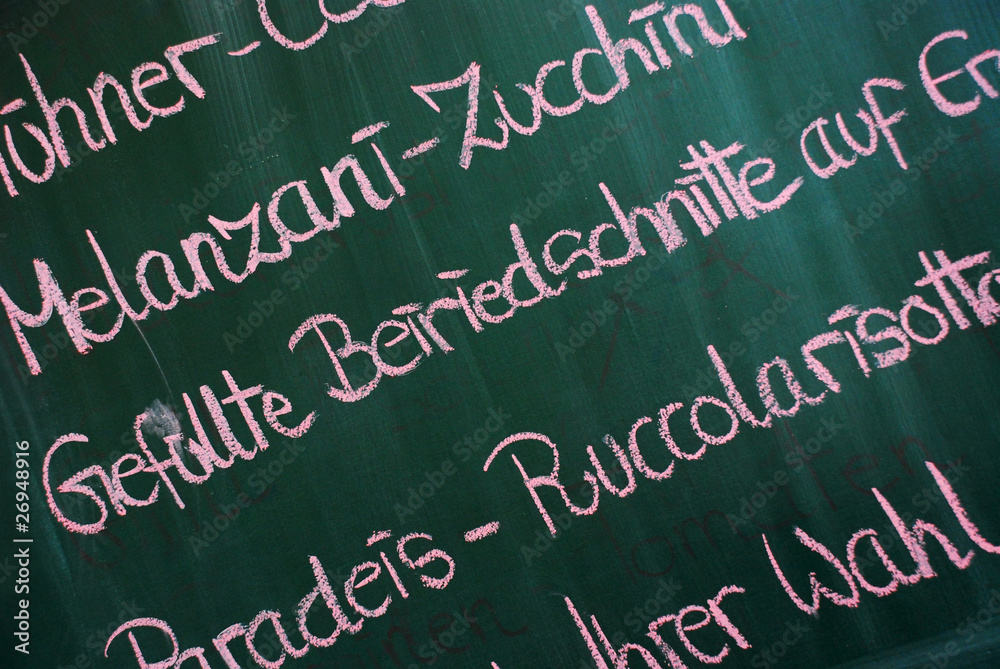 Hühner - Co
Melanzani - Zucchini
Gefüllte Beiriedschnitte auf Er
Paradeis - Ruccolarisotto
Ihrer Wahl
Adobe Stock | #26948916